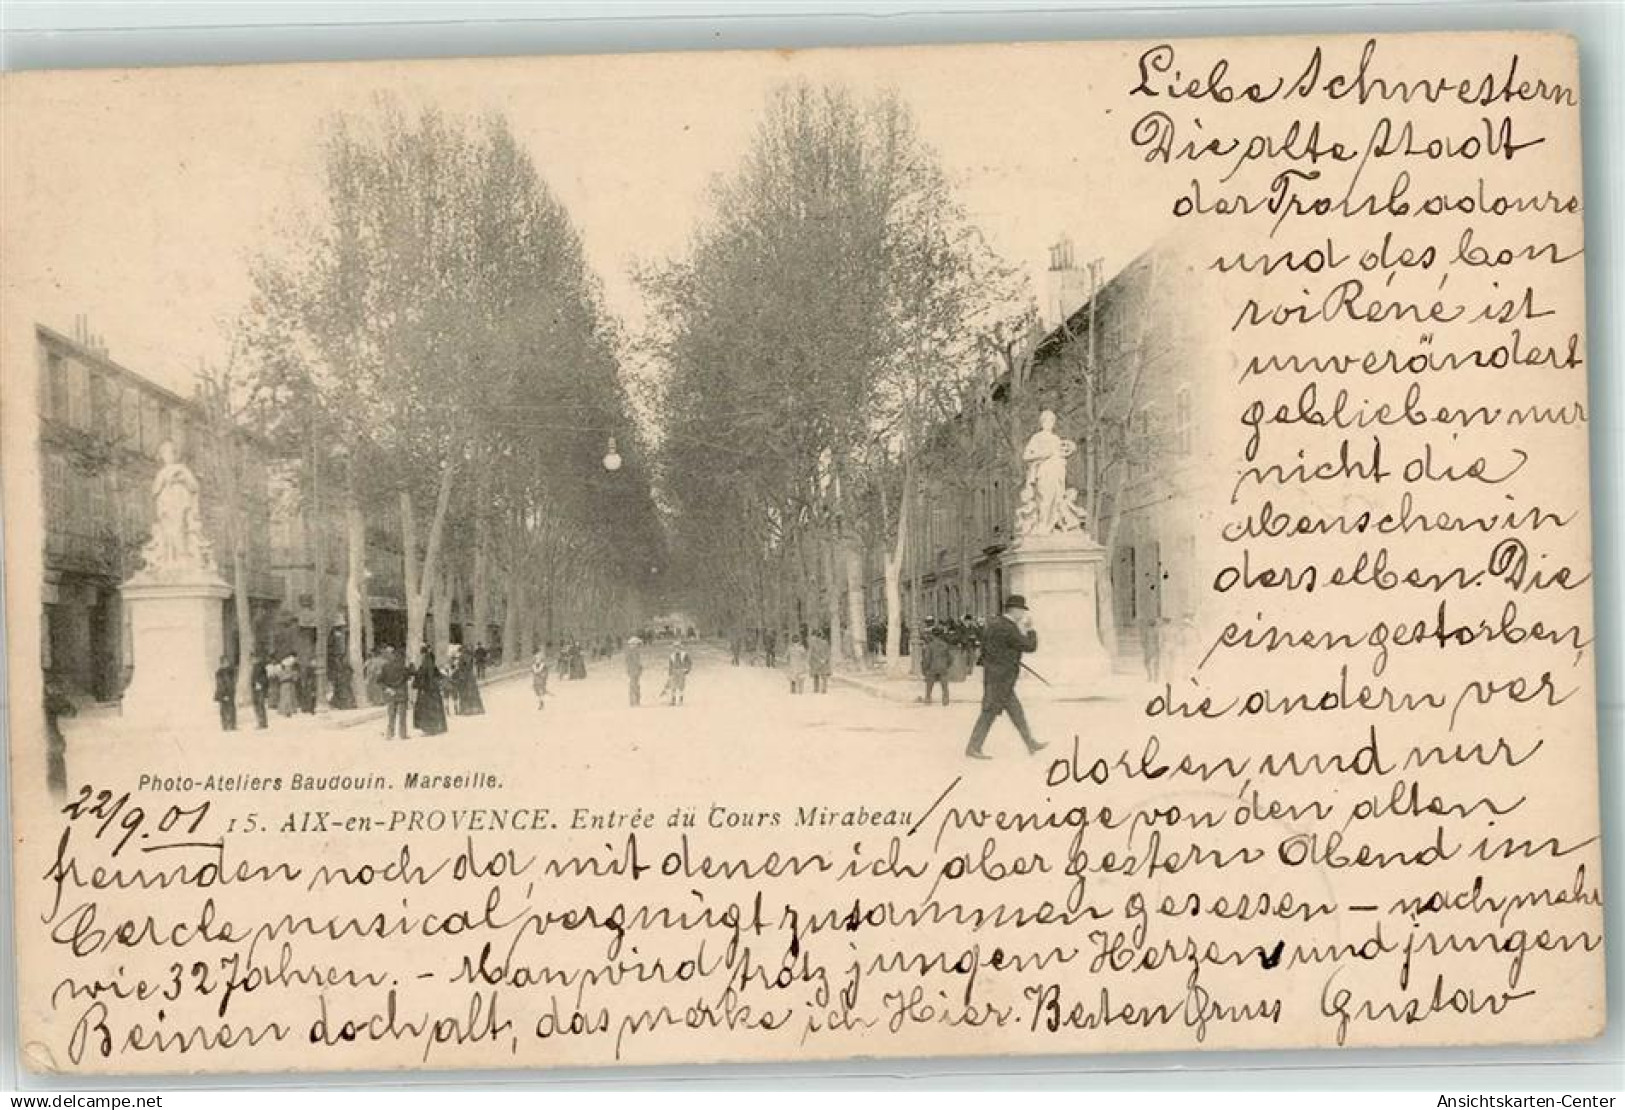 Liebe Schwestern
Die alte Stadt
der Troubadoure
und des bon
roi Réné ist
unverändert
geblieben nur
nicht die
Menschen in
derselben. Die
einen gestorben,
die andern ver
dorben, und nur
Photo-Ateliers Baudouin. Marseille.
22/9.01
15. AIX-en-PROVENCE. Entrée du Cours Mirabeau
wenige von den alten
freunden noch da, mit denen ich aber gestern Abend im
Cercle musical vergnügt zusammen gesessen – nach mehr
wie 32 Jahren. – Man wird trotz jungem Herzen und jungen
Beinen doch alt, das merke ich Hier. Besten Gruss Gustav
www.delcampe.net
Ansichtskarten-Center